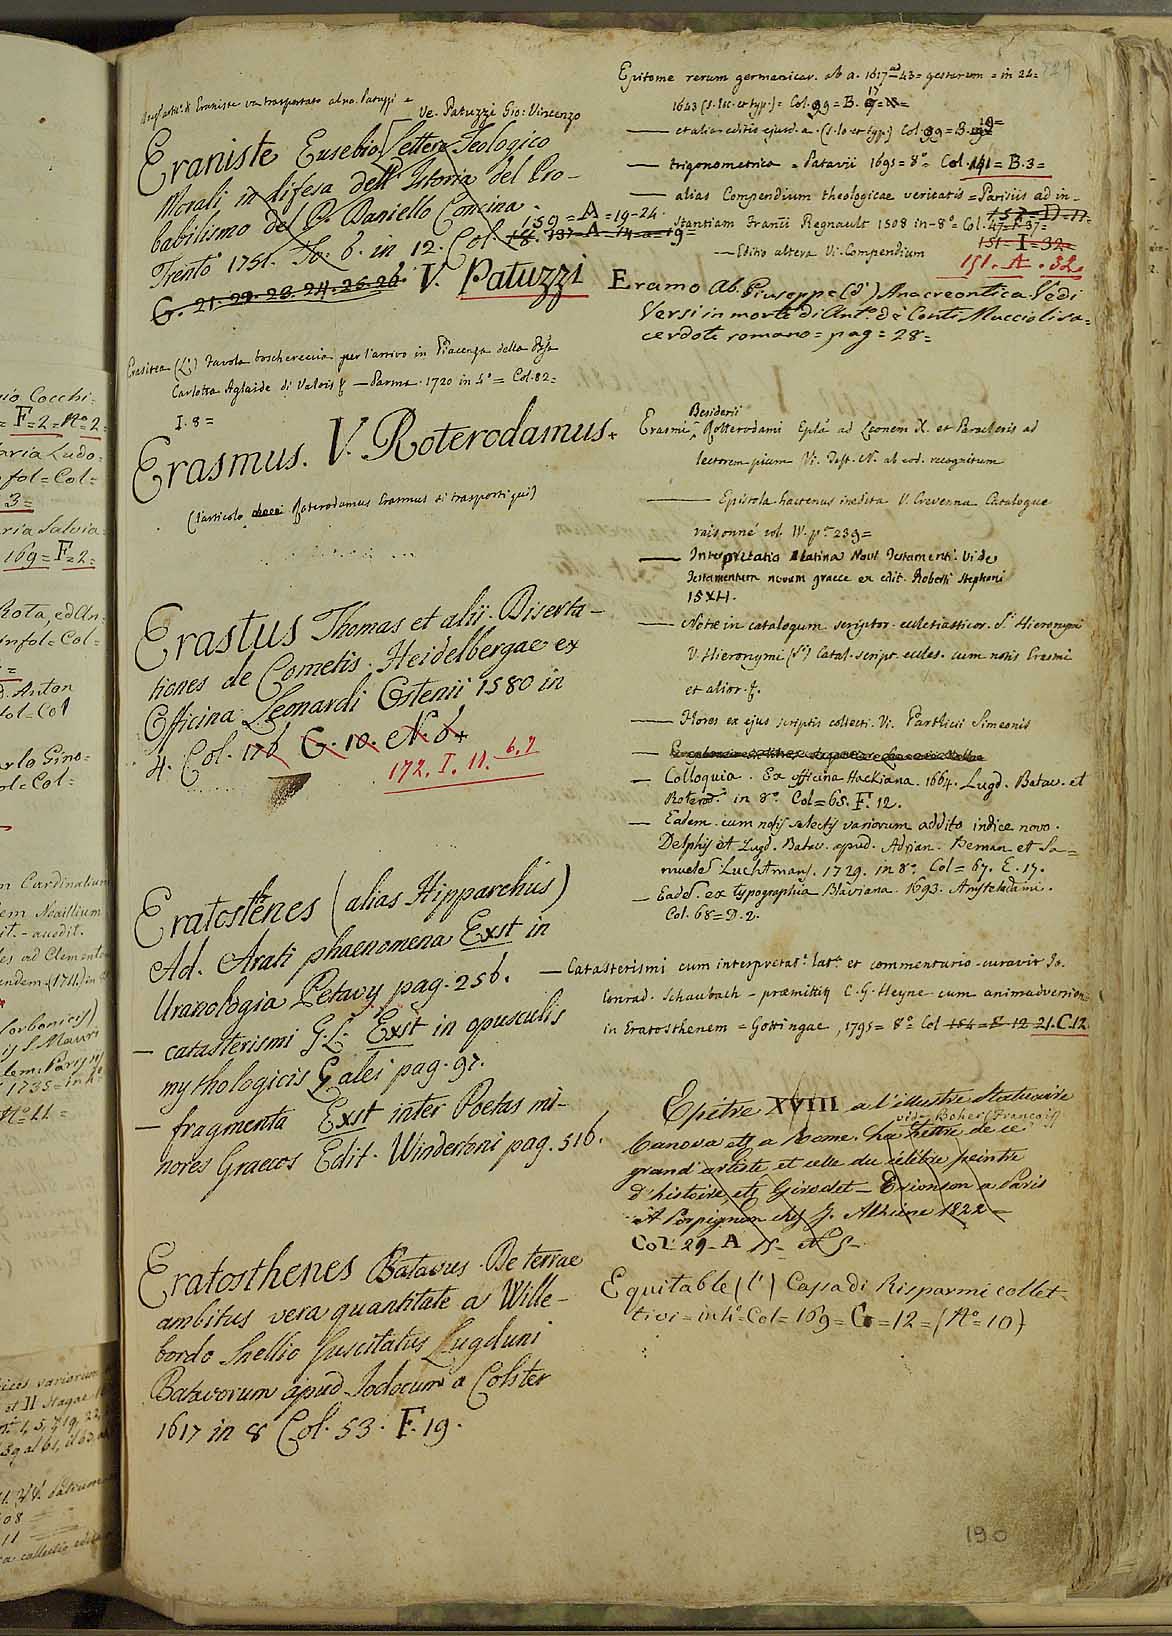 Ve. Patuzzi Gio: Vincenzo
Eraniste Eusebio Lettere Teologico
Morali in difesa dell' Istoria del Pro-
babilismo del P. Daniello Concina.
159 = A = 19-24.
Trento 1751. To. 6. in 12. Col. 18. 137-A-14-a-19=
G. 21. 22. 23. 24. 25. 26. V. Patuzzi
(L') Favola boschereccia per l'arrivo in Piacenza della
Carlotta Aglaide di Valois & — Parma. 1720 in 4° = Col. 82=
I. 8=
Erasmus. V. Roterodamus.
(l'articolo Roterodamus Erasmus si trasporti quì)
Erastus Thomas et alii. Diserta-
tiones de Cometis. Heidelbergae ex
Officina Leonardi Ostenii 1580 in
4. Col. 176 C. 10. N. 6.
172. I. 11. 6.7
Eratostenes (alias Hipparchus)
Ad. Arati phaenomena Exst in
Uranologia Petavij pag. 256.
— catasterismi G.L. Exst in opusculis
mythologicis Galei pag. 97.
— fragmenta Exst inter Poetas mi-
nores Graecos Edit. Windertoni pag. 516.
Eratosthenes Batavus. De terrae
ambitus vera quantitate a Wille-
bordo Snellio suscitatus Lugduni
Batavorum apud Jodocum a Colster
1617 in 8 Col. 53. F. 19.
Epitome rerum germanicar. ab a. 1617 ad 43= gestarum = in 24=
1643 (s. loc. et typ.) = Col. 99 = B. 17
— et alia editio ejusd. a. (s. lo et typ.) Col. 99 = B. 19=
— trigonometrica = Patavii 1695 = 8° Col. 141 = B. 3=
— alias Compendium theologicae veritatis = Parisiis ad in-
stantiam Franĉi Regnault 1508 in-8° Col. 47- F. 37=
157-D-11-
151-I-32
— Editio altera Vi. Compendium
151. A. 32.
Eramo Ab. Giuseppe (d') Anacreontica. Vedi
Versi in morte di Ant° de' Conti Muccioli sa-
cerdote romano = pag = 28=
Desiderii
Erasmi Rotterodami Eplã ad Leonem X. et Paraclesis ad
lectorem pium Vi. Test. N. ab eod. recognitum
— Epistola hactenus inedita V. Crevenna Catalogue
raisonné vol. IV. p. 239=
— Interpretatio Latina Novi Testamenti. Vide
Testamentum novum graece ex edit. Roberti Stephani
— Notae in catalogum scriptor. ecclesiasticor. S. Hieronymi
V. Hieronymi (S.) Catal. script. eccles. cum notis Erasmi
et alior. &.
— Flores ex ejus scriptis collecti. Vi. Parthicii Simeonis
— Colloquia. Ex officina Hackiana. 1664. Lugd. Batav. et
Roterod. in 8°. Col = 65. F. 12.
— Eadem cum notis selectis variorum addito indice novo.
Delphis et Lugd. Batav. apud. Adrian. Beman et Sa=
muelẽ Luchtmans. 1729. in 8°. Col = 67. E. 17.
— Eadẽ. ex typographia Blaviana. 1693. Amstelodami.
Col. 68 = D. 2.
— Catasterismi cum interpretat. lat. et commentario curavit Jo.
Conrad. Schaubach — praemittitur C. G. Heyne cum animadversion
in Eratosthenem = Gottingae, 1795 = 8° Col 154 = E 12 21. C. 12.
Epitre XVIII a l'illustre statuaire
vid. Boher (François)
Canova etc a Rome. La lettre de ce
grand artiste, et celle du célèbre peintre
d'histoire, etc Girodet —
a Paris
A Perpignan chez J. Alzine 1822 —
Col. 29- A
Equitable (l') Cassa di Risparmi collet-
tivi = in 4° = Col = 169 = G = 12 = (N° = 10)
190